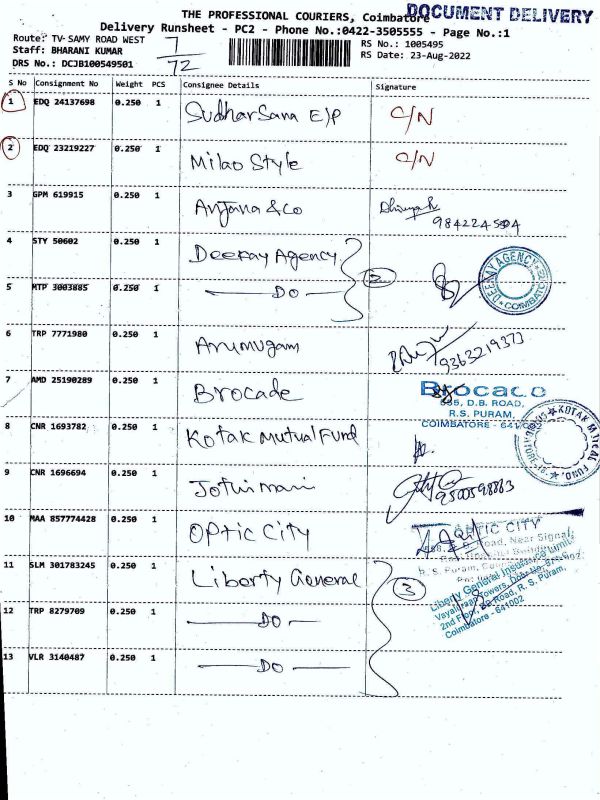 THE PROFESSIONAL COURIERS, Coimbatore
DOCUMENT DELIVERY
Delivery Runsheet - PC2 - Phone No.:0422-3505555 - Page No.:1
Route: TV-SAMY ROAD WEST
Staff: BHARANI KUMAR
DRS No.: DCJB100549501
7
72
RS No.: 1005495
RS Date: 23-Aug-2022
S No Consignment No Weight PCS Consignee Details Signature
1 EDQ 24137698 0.250 1 Sudharsana E/P C/N
2 EDQ 23219227 0.250 1 Milao Style C/N
3 GPM 619915 0.250 1 Anjana & Co
4 STY 50602 0.250 1 Deekay Agency
2
DEEKAY AGENCY
COIMBATO
5 MTP 3003885 0.250 1 DO
6 TRP 7771980 0.250 1 Arumugam 9363219373
7 AMD 25190289 0.250 1 Brocade
Brocade
D.B. ROAD,
R.S. PURAM,
COIMBATORE - 641002
8 CNR 1693782 0.250 1 Kotak Mutual Fund
KOTAK MUTUAL FUND
9 CNR 1696694 0.250 1 Jothimani 9500598863
10 MAA 857774428 0.250 1 Optic City
OPTIC CITY
Road, Near Signal,
R. S. Puram,
11 SLM 301783245 0.250 1 Liberty General
3
Liberty General Insurance Limited
2nd Floor, DB Road, R. S. Puram,
Coimbatore - 641002
12 TRP 8279709 0.250 1 DO
13 VLR 3140487 0.250 1 DO